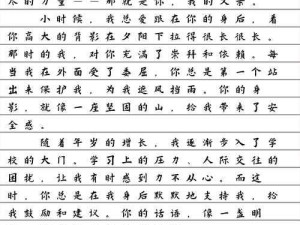 尽的力量——那就是你，我的父亲。
小时候，我总爱跟在你的身后，看
你高大的背影在夕阳下拉得很长很长。
那时的我，对你充满了崇拜和依赖。每
当我在外面受了委屈，你总是第一个站
出来保护我，为我遮风挡雨。你的身
影，就像一座坚固的山，给我带来了安
全感。
随着年岁的增长，我逐渐步入了学
校的大门。学习上的压力、人际交往的
困扰，让我有时感到力不从心。而这
时，你总是在我身后默默地支持我，给
我鼓励和建议。你的话语，像一盏明